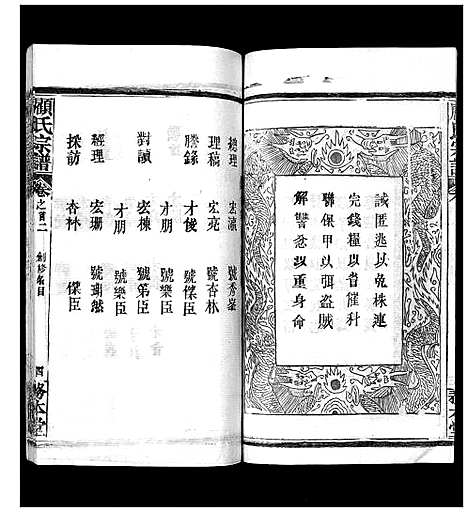 誡匿逃以免株連
完錢糧以省催科
聯保甲以弭盜賊
解讐忿以重身命
總理 宏瀛 號秀峯
理稿 宏亮 號杏林
謄錄 才俊 號傑臣
才朋 號樂臣
對讀 宏棟 號第臣
才朋 號樂臣
經理 宏珊 號瑚然
採訪 杏林 傑臣
顧氏宗譜 卷之首二 創修名目 四 務本堂